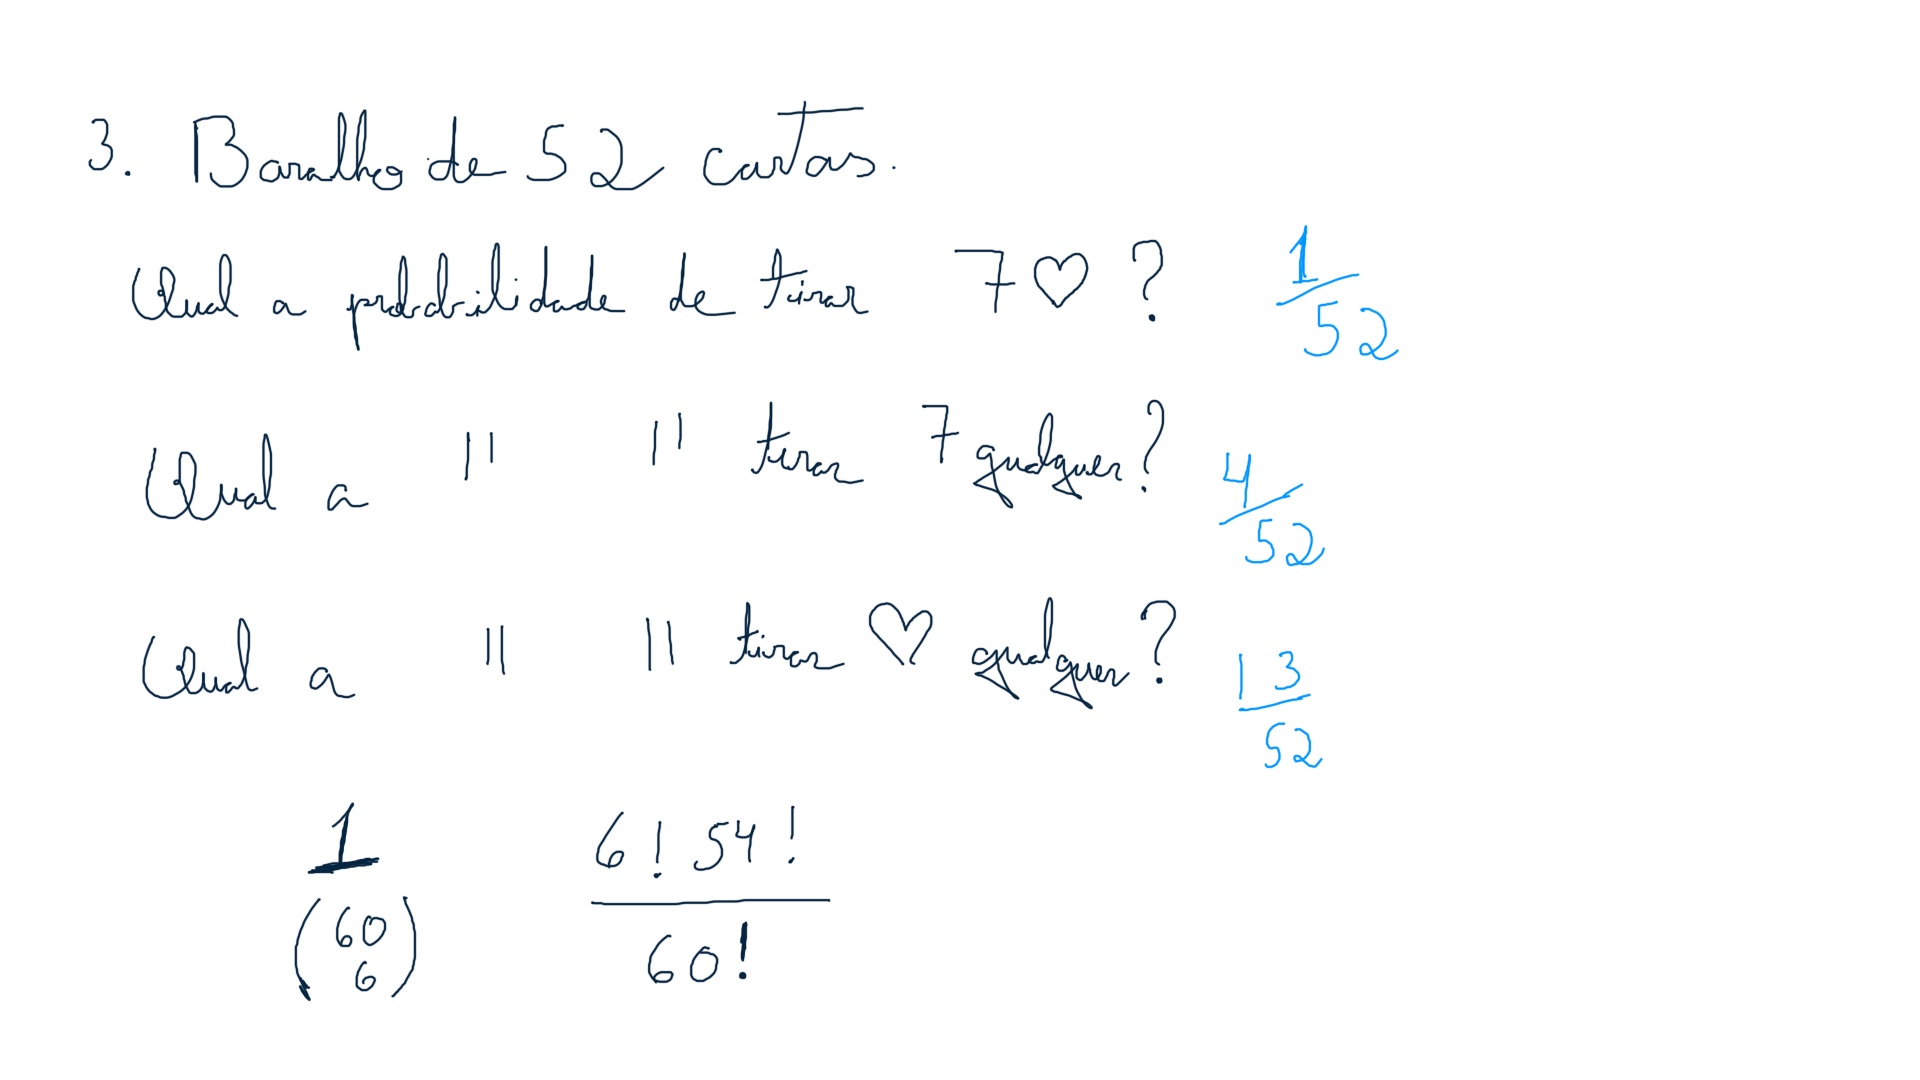 3. Baralho de 52 cartas.
Qual a probabilidade de tirar 7♡? 1/52
Qual a " " tirar 7 qualquer? 4/52
Qual a " " tirar ♡ qualquer? 13/52
1/(60 6) 6! 54!/60!